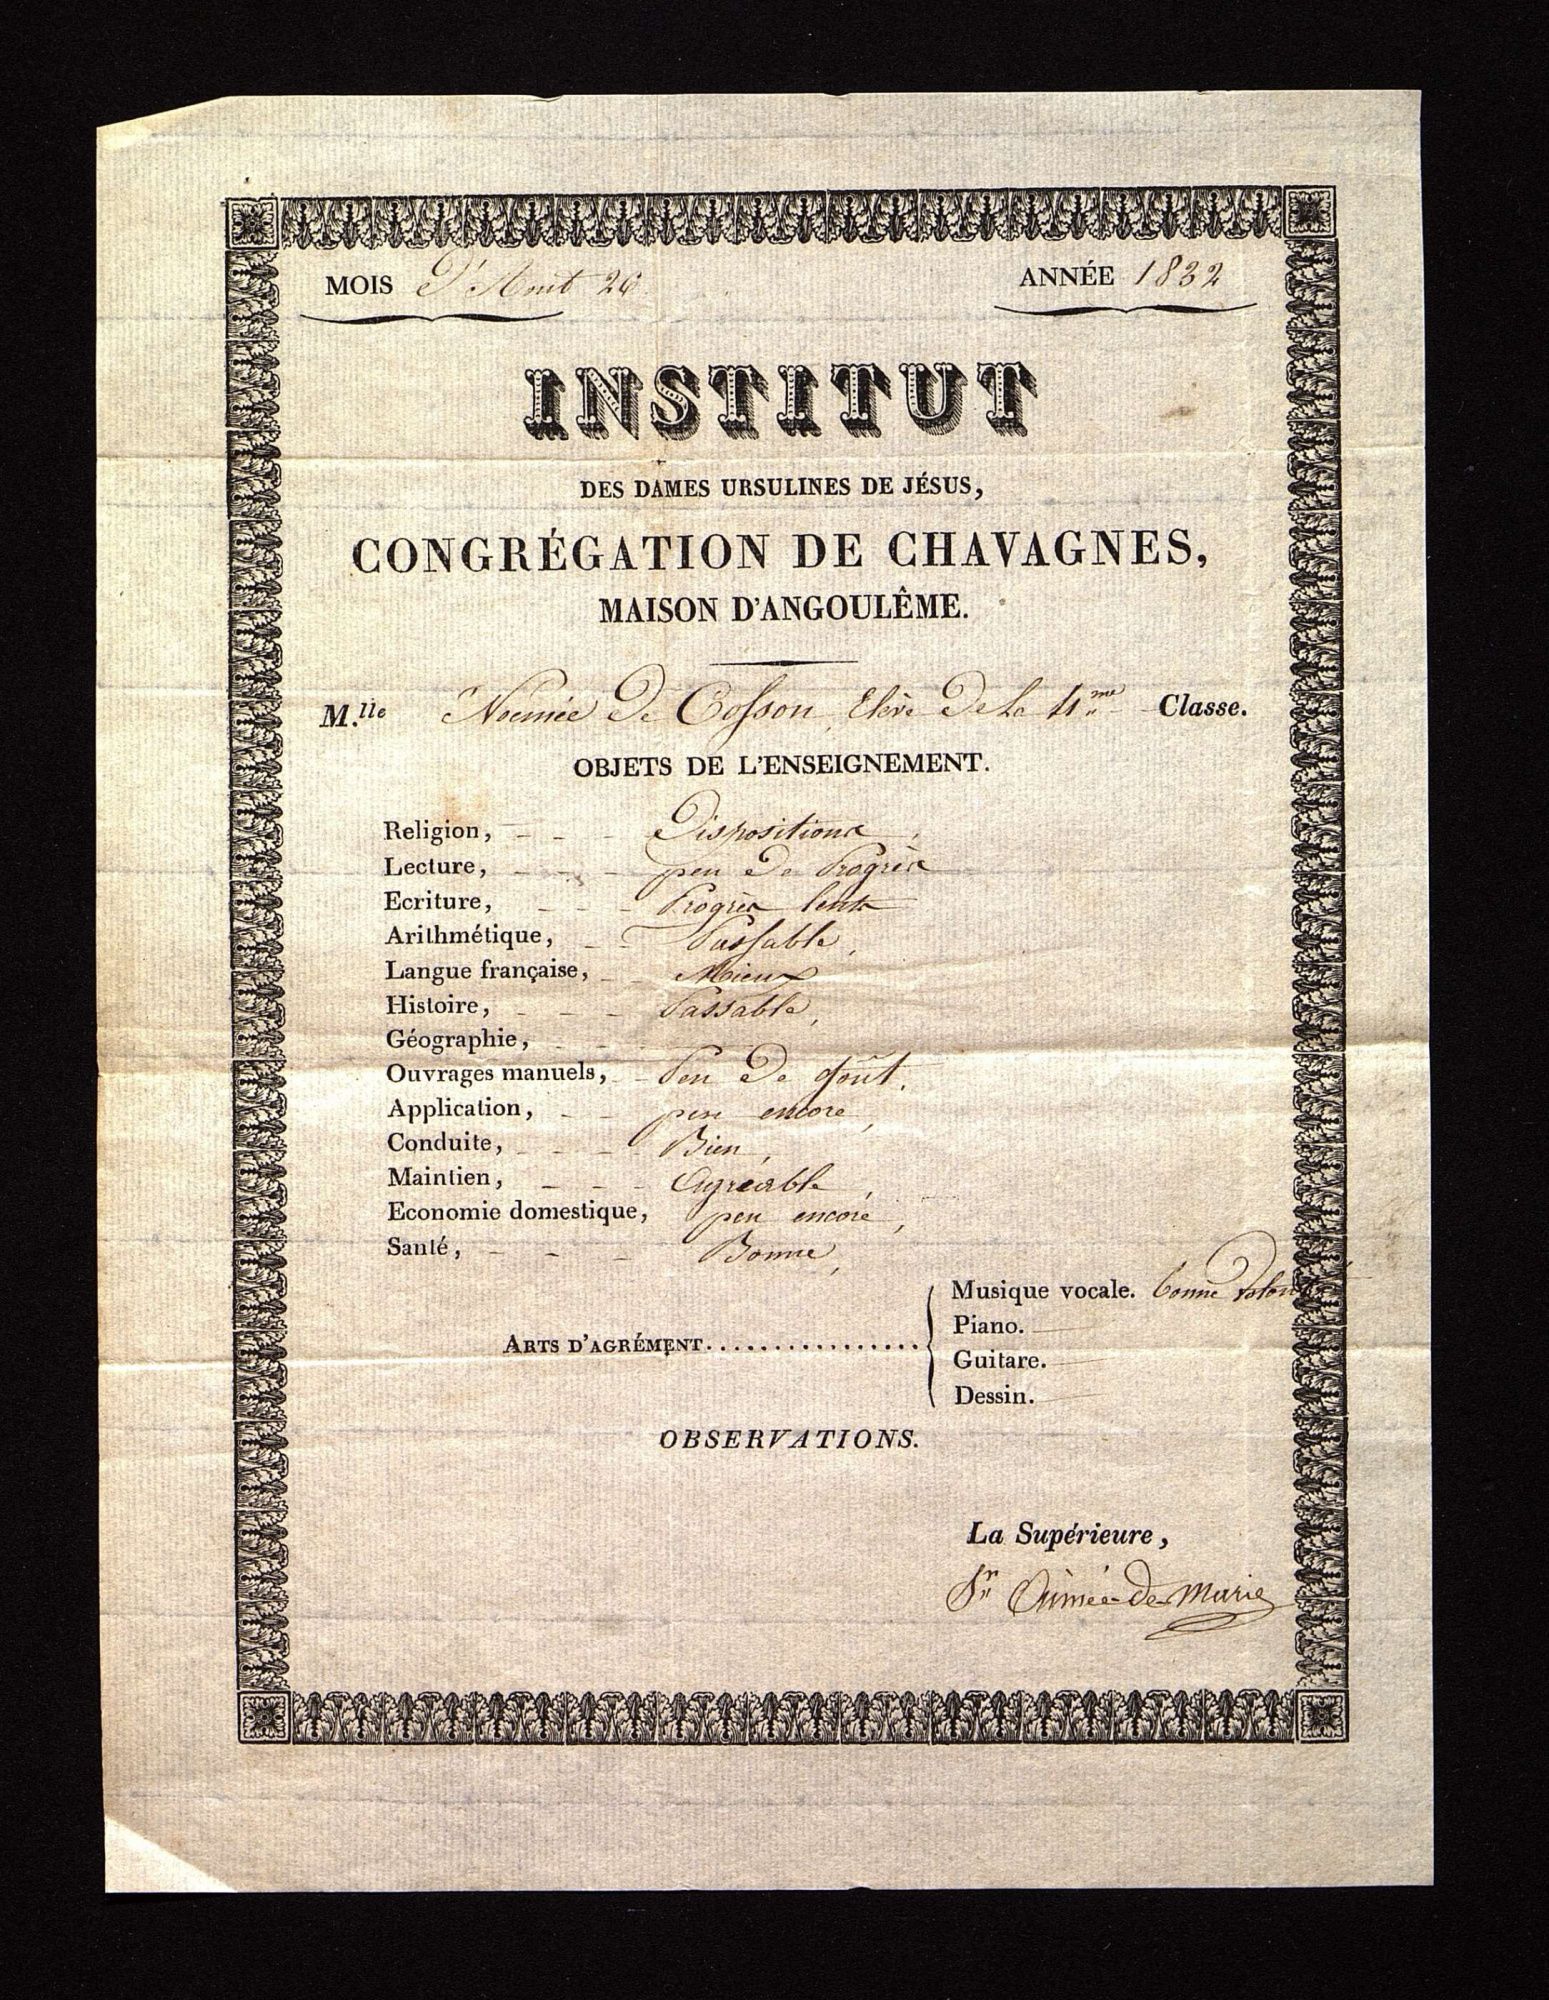 MOIS D'Aout 26 ANNÉE 1832
INSTITUT
DES DAMES URSULINES DE JÉSUS,
CONGRÉGATION DE CHAVAGNES,
MAISON D'ANGOULÊME.
M.lle Noemée De Cosson, Elève De la 4.me Classe.
OBJETS DE L'ENSEIGNEMENT.
Religion, - - - Dispositions,
Lecture, - - - peu De Progrès
Ecriture, - - - Progrès lents
Arithmétique, - - Passable,
Langue française, - Mieux
Histoire, - - - Passable,
Géographie, - -
Ouvrages manuels, - - Peu De goût,
Application, - - peu encore,
Conduite, - - - Bien,
Maintien, - - - Agréable,
Economie domestique, peu encore,
Santé, - - - Bonne,
Musique vocale. bonne volonté
Piano.
ARTS D'AGRÉMENT................
Guitare.
Dessin.
OBSERVATIONS.
La Supérieure,
Sr Aimée-de-Marie